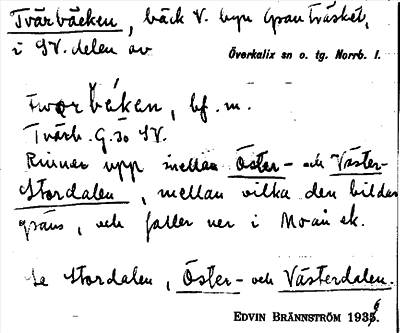 Tvärbäcken, bäck V. byn Granträsket,
i SV. delen av
Överkalix sn o. tg. Norrb. l.
bf. m.
Tvärb. G. 30 SV.
Rinner upp mellan Öster- och Väster-
Stordalen, mellan vilka den bildar
gräns, och faller ner i Mo-ån ek.
Se Stordalen, Öster- och Västerdalen.
EDVIN BRÄNNSTRÖM 1936.